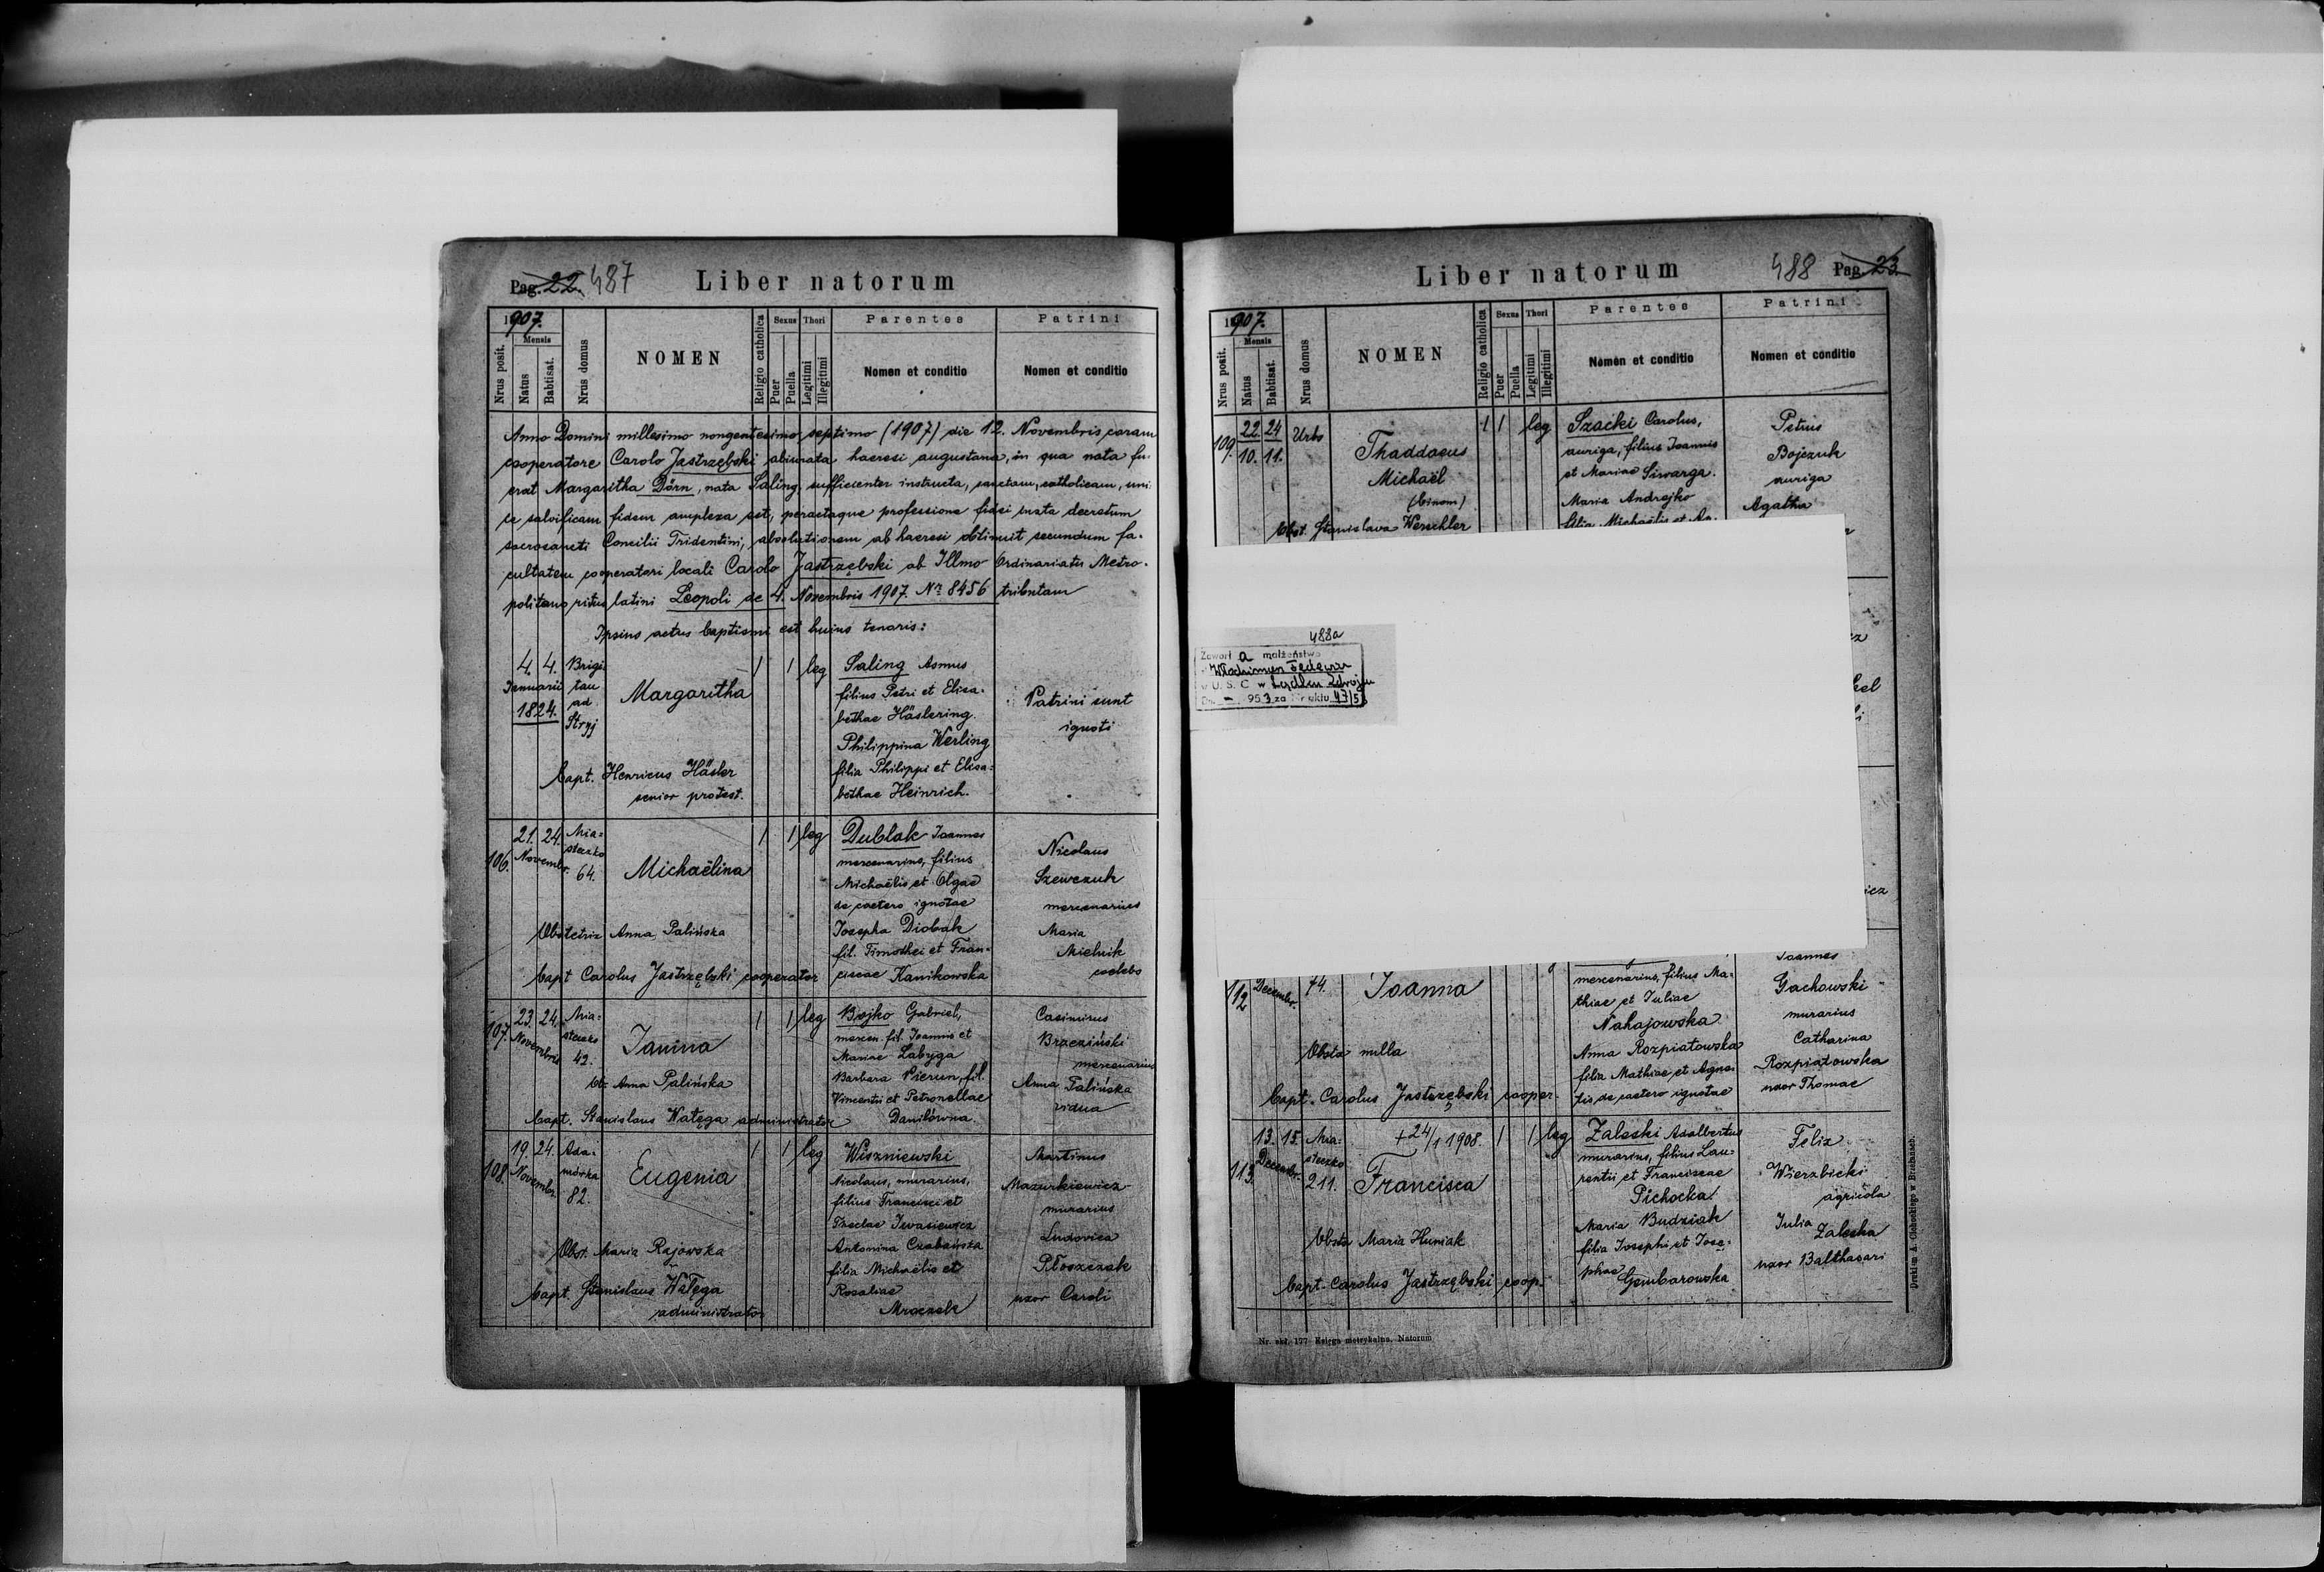 Pag. 22. 487
Liber natorum
1907.
Nrus posit.
Mensis
Natus
Babtisat.
Nrus domus
NOMEN
Religio catholica
Sexus
Puer
Puella
Thori
Legitimi
Illegitimi
Parentes
Nomen et conditio
Patrini
Nomen et conditio
Anno Domini millesimo nongentesimo septimo (1907) die 12. Novembris, coram
cooperatore Carolo Jastrzębski abiurata haeresi augustana, in qua nata fu-
erat Margaritha Dörn, nata Saling, sufficienter instructa, sanctam, catholicam, uni-
ce salvificam fidem amplexa est, peractaque professione fidei iuxta decretum
sacrosancti Concilii Tridentini, absolutionem ab haeresi obtinuit secundum fa-
cultatem cooperatori locali Carolo Jastrzębski ab Illmo Ordinariatu Metro-
politano ritus latini Leopoli de 4. Novembris 1907. Nr 8456 tributam
Ipsius actus baptismi est huius tenoris:
4. 4.
Januarii
1824.
Brigi-
tau
ad
Stryj
Margaritha
1 1 leg
Saling Asmus
filius Petri et Elisa-
bethae Häslering.
Philippina Werling
filia Philippi et Elisa-
bethae Heinrich.
Patrini sunt
ignoti
bapt. Henricus Häsler
senior protest.
106.
21. 24.
Novembr.
Mia-
steczko
64.
Michaëlina
1 1 leg
Dublak Joannes
mercenarius, filius
Michaëlis et Olgae
de caetero ignotae
Josepha Diobak
fil. Timothei et Fran-
ciscae Kanikowska
Nicolaus
Szewczuk
mercenarius
Maria
Mielnik
coelebs
Obstetrix Anna Palińska
bapt Carolus Jastrzębski cooperator
107.
23. 24.
Novembris
Mia-
steczko
42.
Janina
1 1 leg
Bojko Gabriel,
mercen. fil. Joannis et
Mariae Labyga
Barbara Pierun, fil.
Vincentii et Petronellae
Danilówna
Casimirus
Brzeziński
mercenarius
Anna Palińska
vidua
Ob. Anna Palińska
bapt. Stanislaus Wałęga administrator
108.
19. 24.
Novembr.
Ada-
mówka
82.
Eugenia
1 1 leg
Wiszniewski
Nicolaus, murarius,
filius Francisci et
Theclae Iwasiewicz
Antonina Czabańska
filia Michaëlis et
Rosaliae
Mroczek
Martinus
Mazurkiewicz
murarius
Ludovica
Płoszczak
uxor Caroli
Obst. Maria Rajowska
bapt. Stanislaus Wałęga
administrator
Liber natorum
488 Pag. 23.
1907.
Nrus posit.
Mensis
Natus
Babtisat.
Nrus domus
NOMEN
Religio catholica
Sexus
Puer
Puella
Thori
Legitimi
Illegitimi
Parentes
Nomen et conditio
Patrini
Nomen et conditio
109.
22. 24
10. 11.
Urbs
Thaddaeus
Michaël
(binom)
1 1 leg
Szacki Carolus,
auriga, filius Joannis
et Mariae Siwarga.
Maria Andrejko
filia Michaëlis et
Petrus
Bojczuk
auriga
Agatha
Obst. Stanislava Werschler
488a
Zawarł a małżeństwo
Włodzimierz
w U. S. C. w Lądku Zdroju
Dn. - 953 za Nr aktu 47/53
112
Decembr.
74.
Joanna
mercenarius, filius Ma-
thiae et Juliae
Nahajowska
Anna Rozpiatowska
filia Mathiae et Agne-
tis de caetero ignotae
Joannes
Gachowski
murarius
Catharina
Rozpiątowska
uxor Thomae
Obstx nulla
bapt. Carolus Jastrzębski cooper.
113.
13. 15.
Decembr.
Mia-
steczko
211.
+ 24/1 1908.
Francisca
1 1 leg
Zaleski Adalbertus
murarius, filius Lau-
rentii et Franciscae
Pichocka
Maria Budziak
filia Josephi et Jose-
phae Gembarowska
Felix
Wierzbicki
agricola
Julia
Zaleska
uxor Balthasari
Obstx Maria Huniak
bapt. Carolus Jastrzębski coop.
Nr. 177 Księga metrykalna, Natorum
Drukiem A. Cichockiego w Brzeżanach.